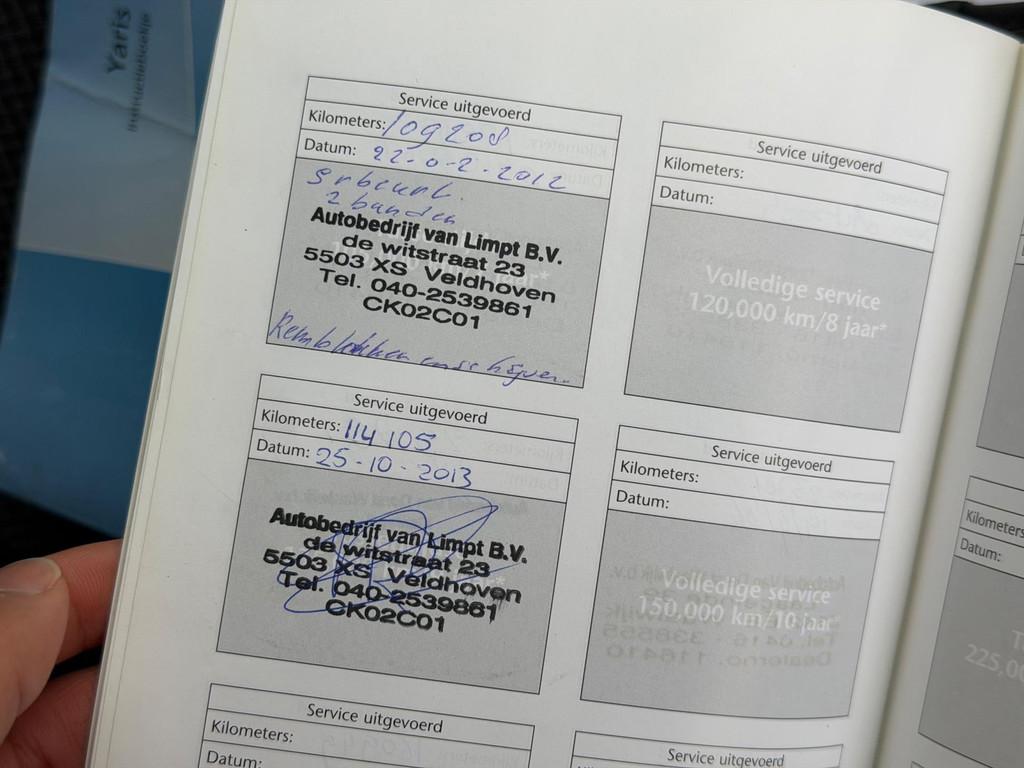 Yaris
Instructieboekje
Service uitgevoerd
Kilometers: 109208
Datum: 22-02-2012
gr beurt.
2 banden
Autobedrijf van Limpt B.V.
de witstraat 23
5503 XS Veldhoven
Tel. 040-2539861
CK02C01
Remblokken en schijven.
Service uitgevoerd
Kilometers:
Datum:
Volledige service
120,000 km/8 jaar*
Service uitgevoerd
Kilometers: 114 105
Datum: 25-10-2013
Autobedrijf van Limpt B.V.
de witstraat 23
5503 XS Veldhoven
Tel. 040-2539861
CK02C01
Service uitgevoerd
Kilometers:
Datum:
Volledige service
150,000 km/10 jaar*
Service uitgevoerd
Kilometers:
Datum:
Service uitgevoerd
Kilometers
Datum:
225,00